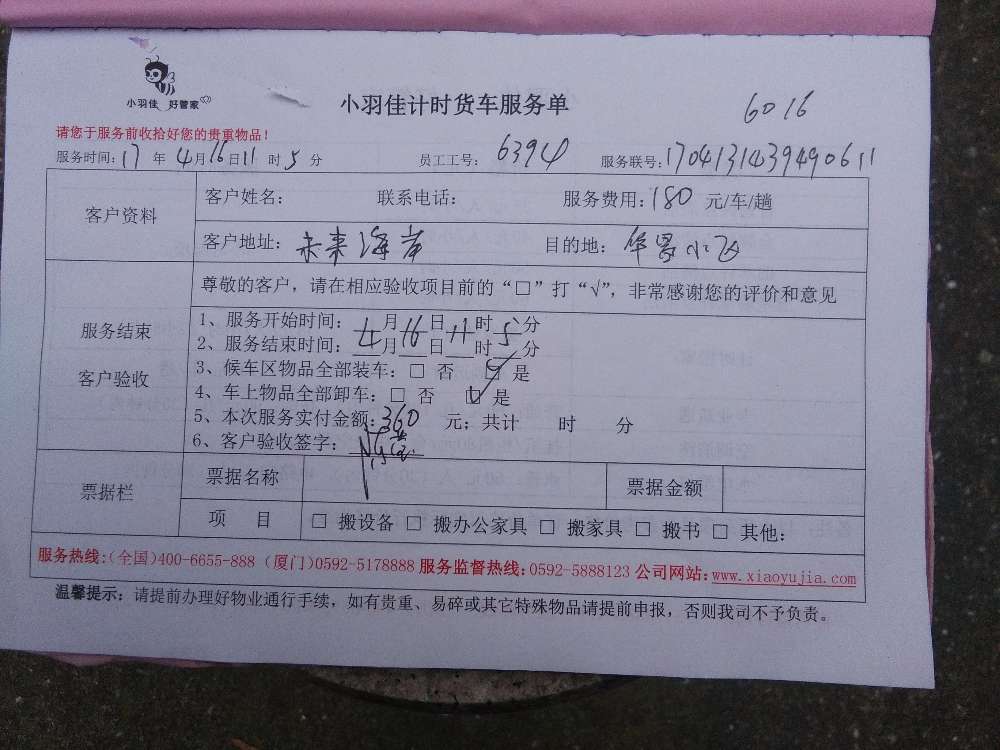 小羽佳 好管家
小羽佳计时货车服务单
6016
请您于服务前收拾好您的贵重物品!
服务时间: 17 年 4月 16日 11 时 5 分 员工工号: 6394 服务联号: 170413143949061 1
客户资料
客户姓名: 联系电话: 服务费用: 180 元/车/趟
客户地址: 未来海岸 目的地: 华昌小
服务结束
客户验收
尊敬的客户，请在相应验收项目前的“□”打“√”，非常感谢您的评价和意见
1、服务开始时间: 4月16日11时5分
2、服务结束时间: 月 日 时 分
3、候车区物品全部装车: □ 否 ☑ 是
4、车上物品全部卸车: □ 否 ☑ 是
5、本次服务实付金额: 360 元: 共计 时 分
6、客户验收签字:
票据栏
票据名称 票据金额
项 目 □ 搬设备 □ 搬办公家具 □ 搬家具 □ 搬书 □ 其他:
服务热线:(全国)400-6655-888 (厦门)0592-5178888 服务监督热线:0592-5888123 公司网站:www.xiaoyujia.com
温馨提示: 请提前办理好物业通行手续，如有贵重、易碎或其它特殊物品请提前申报，否则我司不予负责。